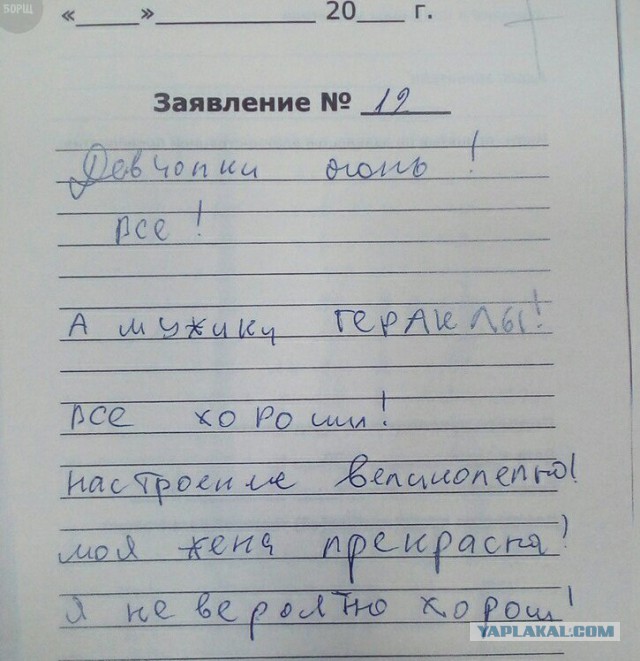 БОРЩ
«____»____________ 20___ г.
Заявление № 12
Девчонки огонь !
все !
А мужики ГЕРАКЛЫ!
все хороши!
настроение великолепно!
моя жена прекрасна!
Я невероятно хорош!
YAPLAKAL.COM